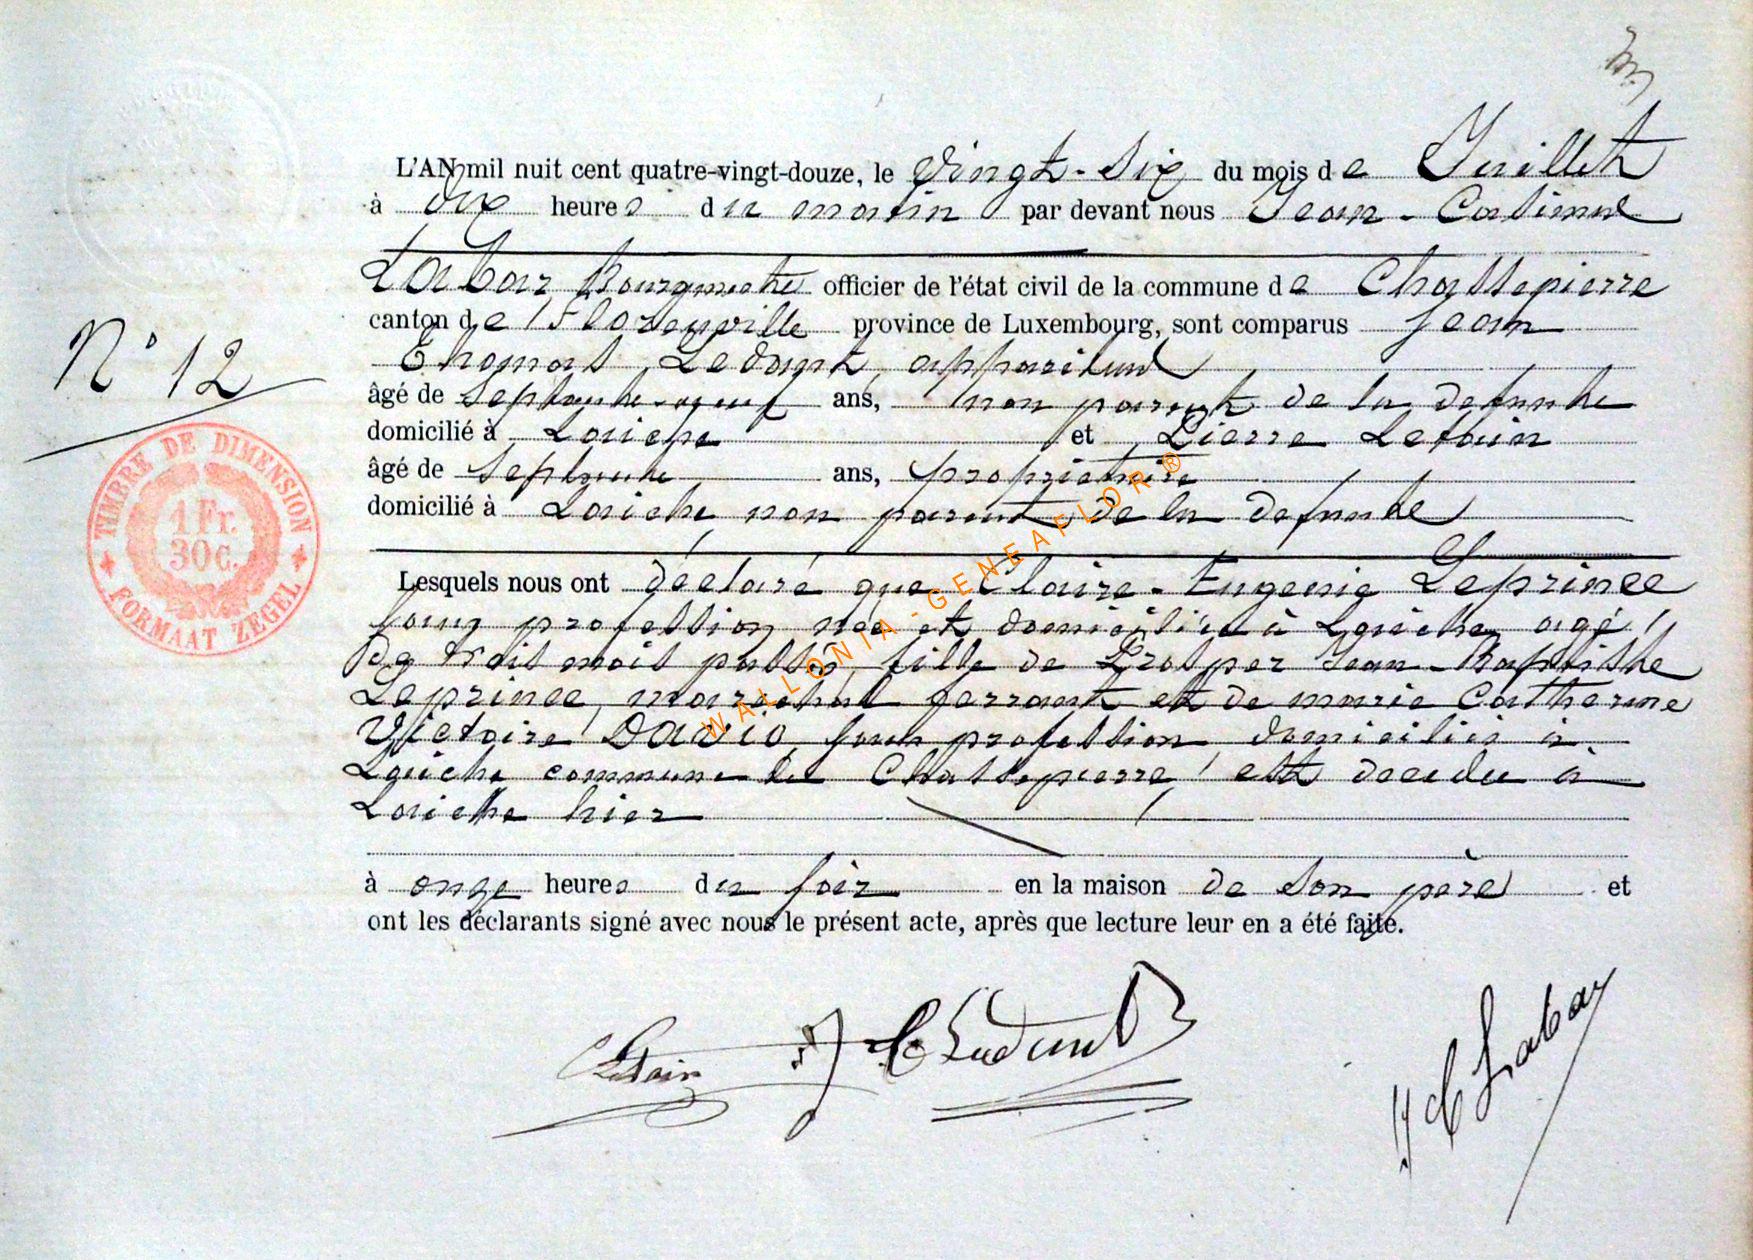 L'AN mil huit cent quatre-vingt-douze, le vingt-six du mois de Juillet
à dix heures du matin par devant nous Jean-Casimir
Labar Bourgmestre officier de l'état civil de la commune de Chassepierre
canton de Florenville province de Luxembourg, sont comparus Jean
Thomas Ledant, appariteur
âgé de septante-neuf ans, non parent de la defunte
domicilié à Laiche et Pierre Lefain
âgé de septante ans, propriétaire
domicilié à Laiche, non parent de la defunte
N° 12
TIMBRE DE DIMENSION
1 Fr.
30 c.
FORMAAT ZEGEL
Lesquels nous ont déclaré que Claire-Eugenie Leprince
sans profession née et domiciliée à Laiche agé
de trois mois passés, fille de Prosper Jean-Baptiste
Leprince, maréchal ferrant et de marie Catherine
Victoire DAVID, sans profession domiciliés à
Laiche commune de Chassepierre, est decedée à
Laiche hier
à onze heures du soir en la maison de son père et
ont les déclarants signé avec nous le présent acte, après que lecture leur en a été faite.
Ledant
J C Labar
WALLONIA-GENEAFLOR®